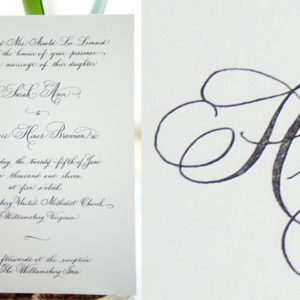 d Mrs Arnold Lee Leonard
the honour of your presence
marriage of their daughter
Sarah Ann
to
Hines Brannon
day, the twenty-fifth of June
thousand and eleven
at five o'clock
burg United Methodist Church
Williamsburg, Virginia
afterwards at the reception
The Williamsburg Inn
H